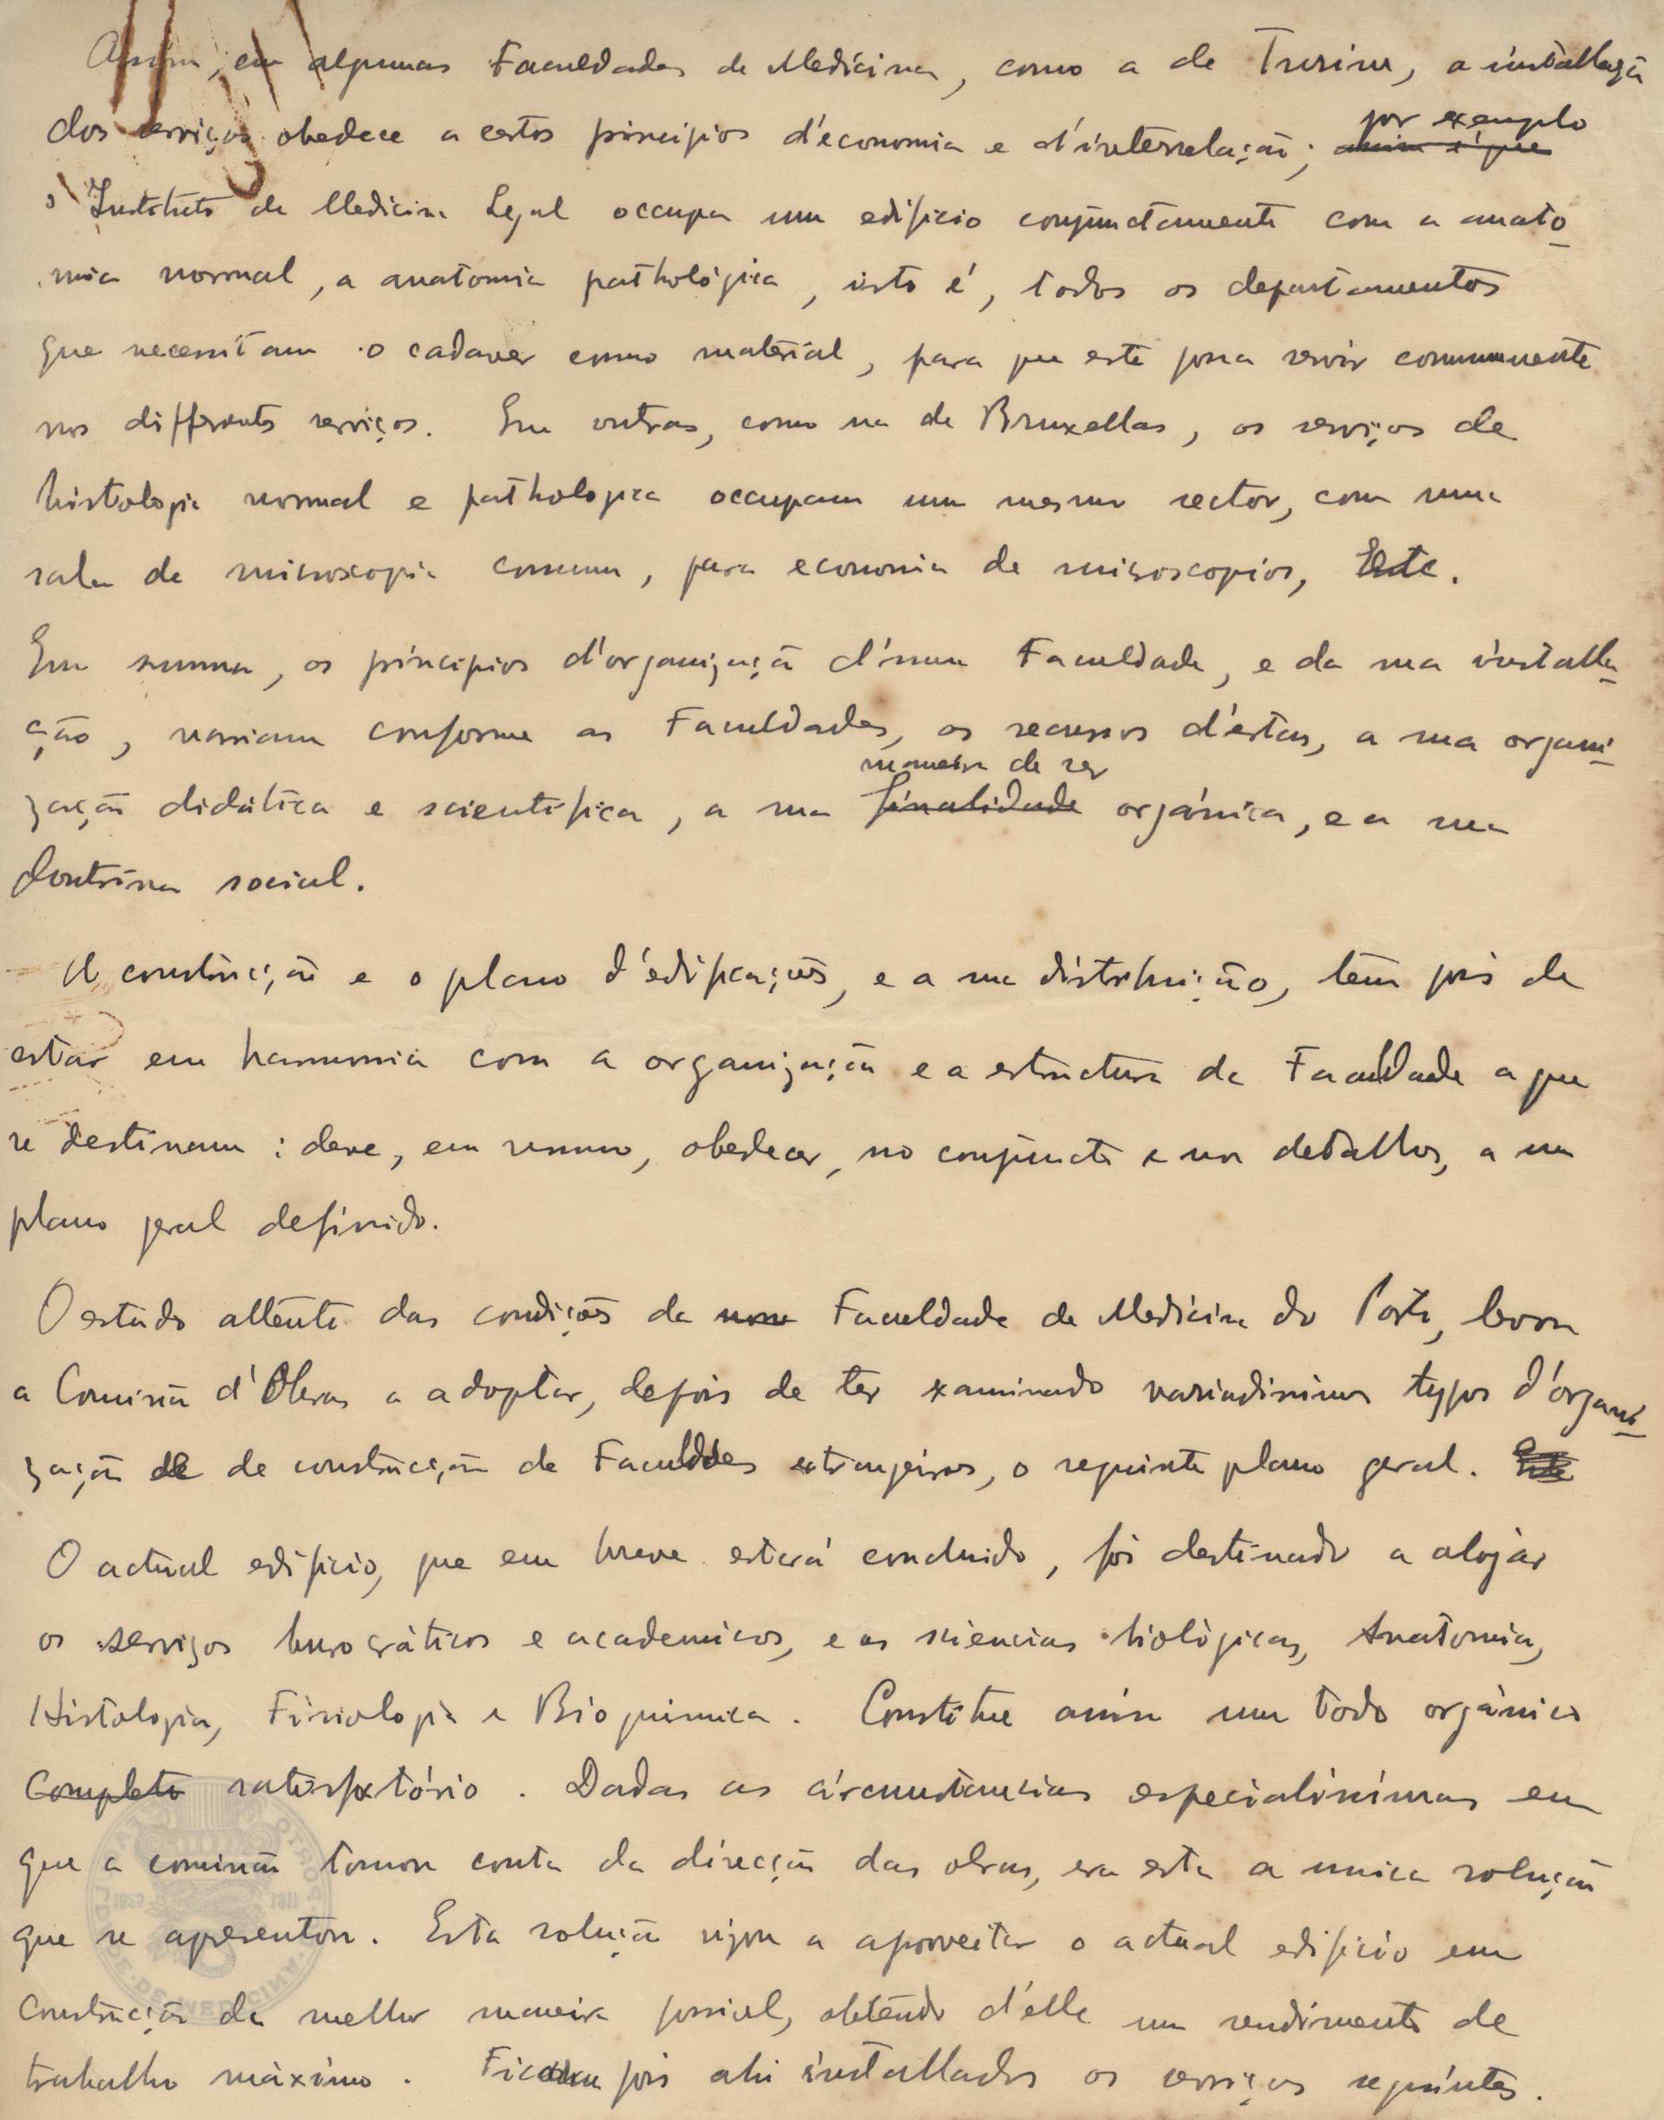 Assim, em algumas Faculdades de Medicina, como a de Turim, a installaçã
dos serviços obedece a certos principios d'economia e d'interrelação; por exemplo
assim é que
o Instituto de Medicina Legal occupa um edificio conjunctamente com a anato-
mia normal, a anatomia pathológica, isto é, todos os departamentos
que necessitam o cadaver como material, para que este possa servir communmente
nos differentes serviços. Em outras, como na de Bruxellas, os serviços de
histologia normal e pathologica occupam um mesmo sector, com uma
sala de microscopia commum, para economia de microscopios, Etc.
Em summa, os principios d'organização d'uma Faculdade, e da sua installa-
ção, variam conforme as Faculdades, os recursos d'estas, a sua organi-
maneira de ser
zação didática e scientifica, a sua finalidade orgánica, e a sua
doutrina social.
A construcção e o plano d'edificações, e a sua distribuição, têm pois de
estar em harmonia com a organização e a estructura da Faculdade a que
se destinam: deve, em resumo, obedecer, no conjuncto e nos detalhes, a um
plano geral definido.
O estudo attento das condições da nossa Faculdade de Medicina do Porto, levou
a Comissão d'Obras a adoptar, depois de ter examinado variadissimos typos d'organi-
zação de de construcção de Faculdades estrangeiras, o seguinte plano geral.
O actual edificio, que em breve estará concluido, foi destinado a alojar
os serviços burocráticos e academicos, e as sciencias biológicas, Anatomia,
Histologia, Fisiologia e Bioquimica. Constitue assim um todo orgánico
Completo satisfatório. Dadas as circunstancias especialissimas em
que a comissão tomou conta da direcção das obras, era esta a unica solução
que se apresentou. Esta solução visou a aproveitar o actual edificio em
construcção da melhor maneira possivel, obtendo d'elle um rendimento de
trabalho máximo. Ficam pois ahi installados os serviços seguintes.